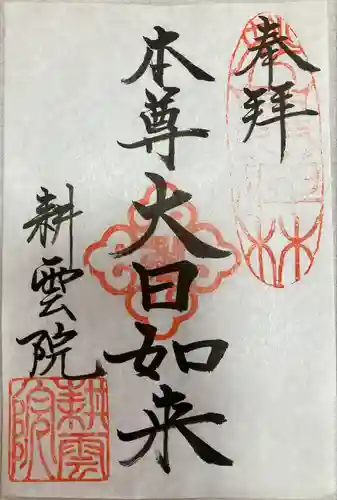 奉拝
本尊大日如来
耕雲院
耕雲院